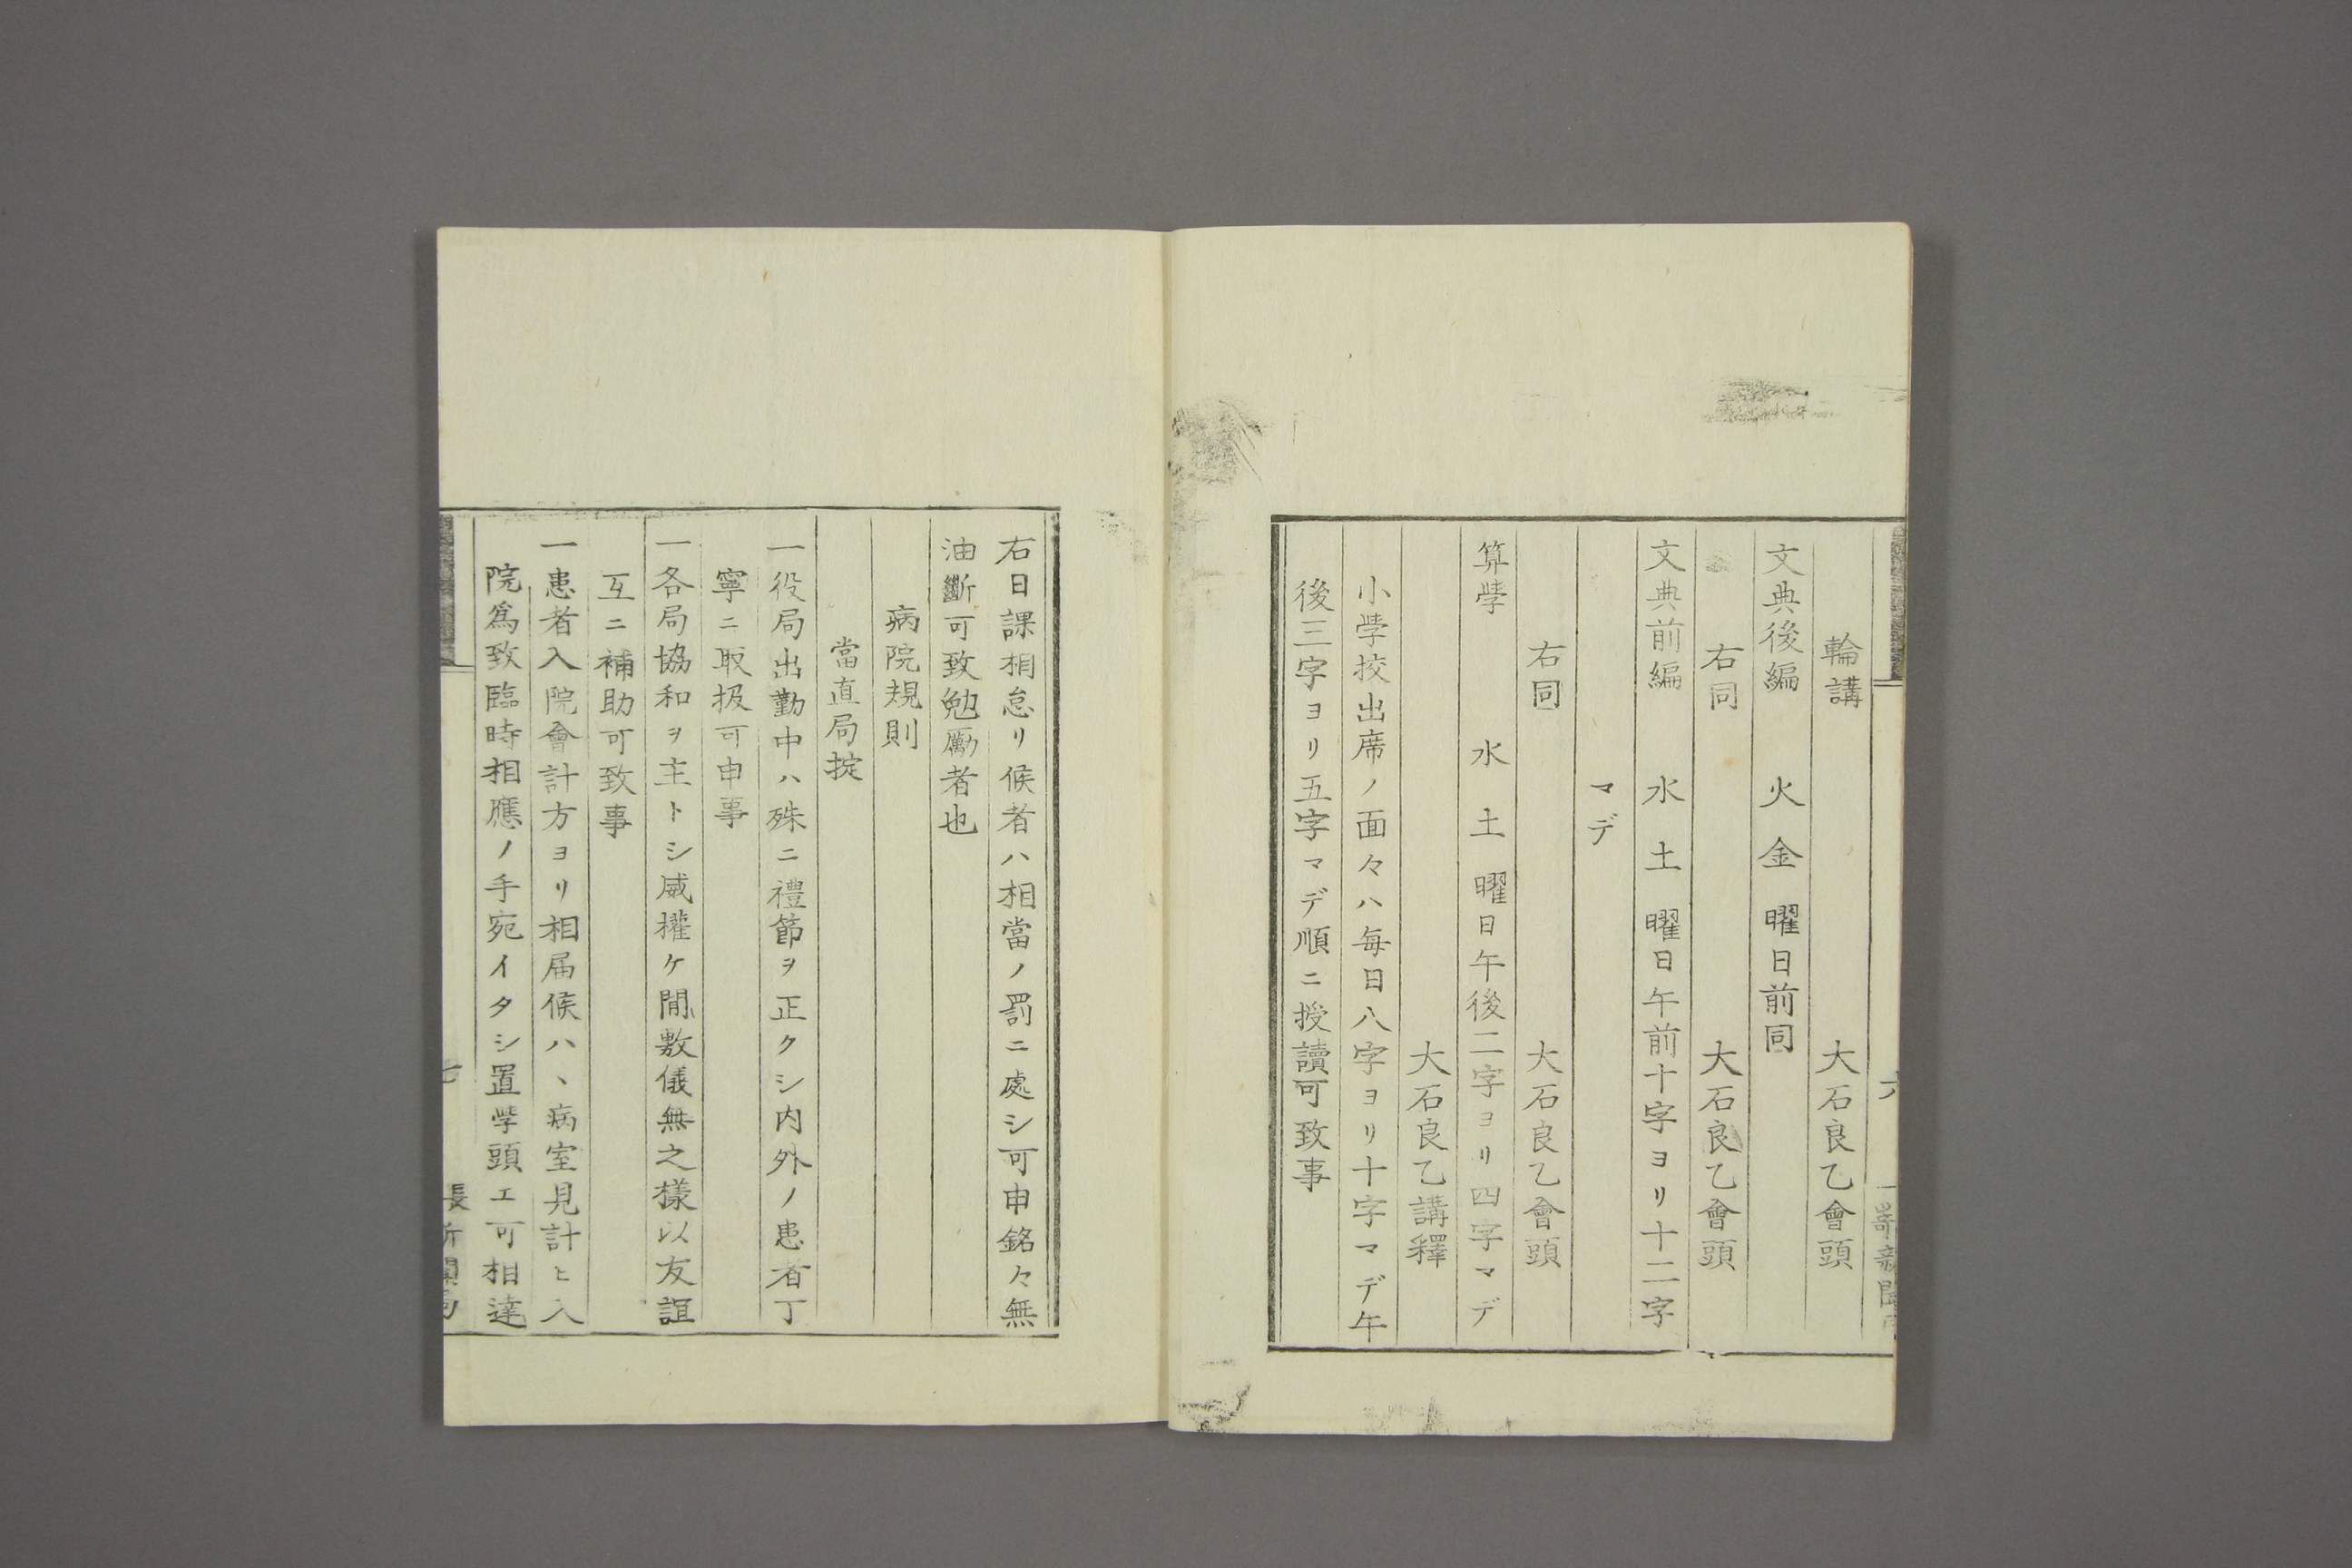 輪講　大石良乙會頭
文典後編　火　金　曜日前同
右同　大石良乙會頭
文典前編　水　土　曜日午前十字ヨリ十二字
マデ
右同　大石良乙會頭
算學　水　土　曜日午後二字ヨリ四字マデ
大石良乙講釋
小學校出席ノ面々ハ毎日八字ヨリ十字マデ午
後三字ヨリ五字マデ順ニ授讀可致事
右日課相怠リ候者ハ相當ノ罰ニ處シ可申銘々無
油斷可致勉勵者也
病院規則
當直局掟
一役局出勤中ハ殊ニ禮節ヲ正クシ内外ノ患者丁
寧ニ取扱可申事
一各局協和ヲ主トシ威權ケ間敷儀無之樣以友誼
互ニ補助可致事
一患者入院會計方ヨリ相届候ハヽ病室見計ヒ入
院爲致臨時相應ノ手宛イタシ置學頭エ可相達
七